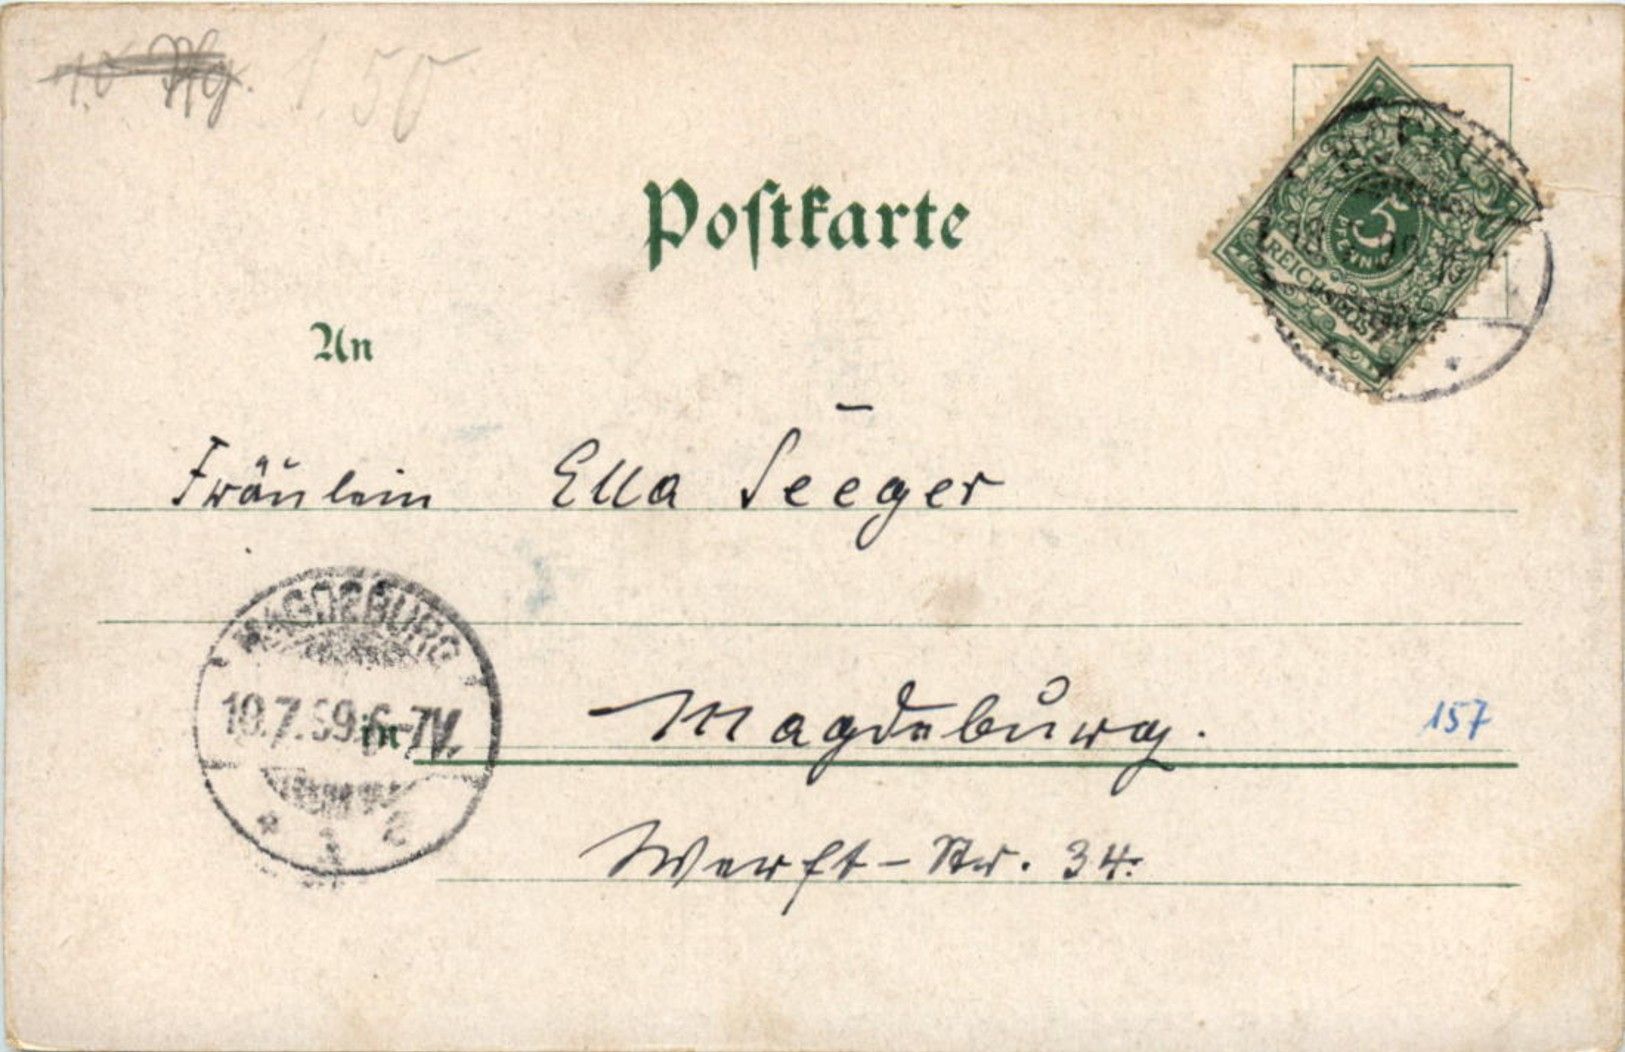 1.50
Postkarte
5
PFENNIG
REICHSPOST
An
Fräulein Ella Seeger
MAGDEBURG
10.7.99.6-7N.
in Magdeburg.
157
Werft-Str. 34.